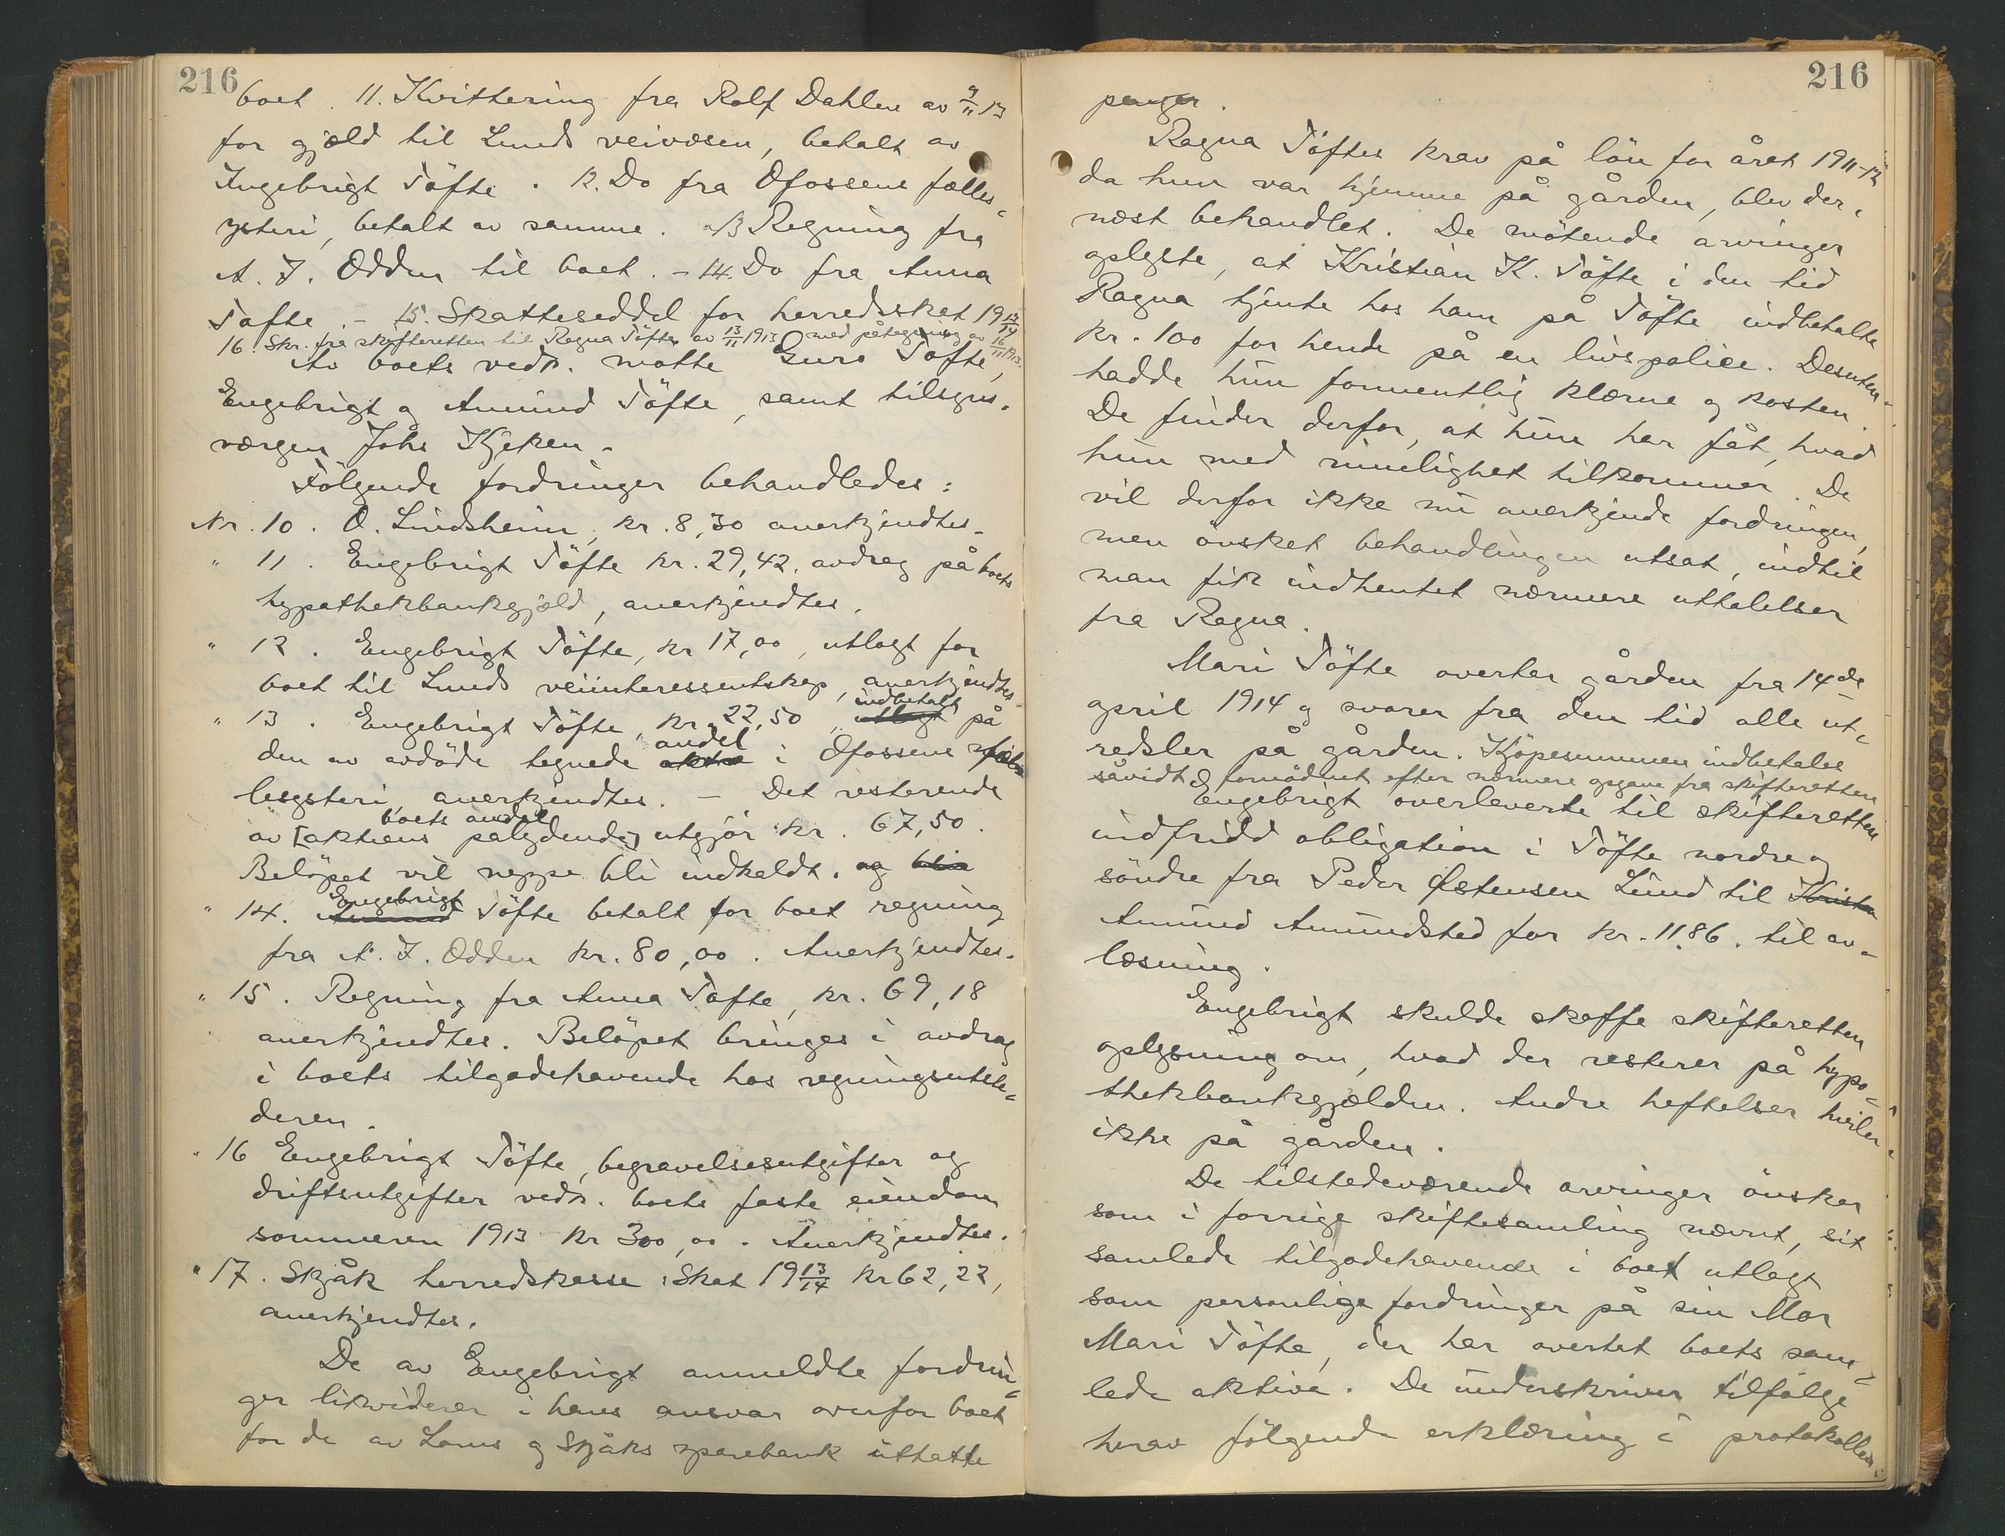 216
boet. 11. Kvittering fra Rolf Dahlen av 9/11 13
for gjæld til Lunds veivæsen, betalt av
Ingebrigt Töfte. 12. Do fra Ofossens fælles-
ysteri, betalt av samme. 13 Regning fra
A. J. Odden til boet. - 14. Do fra Anna
Töfte. - 15. Skatteseddel for herredsskat 19 13/14
16. Skr. fra skifteretten til Ragna Töfte av 13/11 1913 med påtegning av 16/11 1913.
Av boets vedk. møtte Guro Töfte,
Engebrigt og Amund Töfte, samt tilsyns-
værgen Johs Kjeken.
Fölgende fordringer behandledes:
Nr. 10. O. Lindsheim, kr. 8,30 anerkjendtes.
" 11. Engebrigt Töfte kr. 29,42, avdrag på boets
hypothekbankgjæld, anerkjendtes.
" 12. Engebrigt Töfte, kr 17,00, utlagt for
boet til Lunds veiinteressentskap, anerkjendtes.
" 13. Engebrigt Töfte, kr. 22,50, utlagt indbetalt på
den av avdöde tegnede aktie andel i Ofossens fæl-
lesysteri, anerkjendtes. - Det resterende
av [aktiens boets andel pålydende] utgjör kr. 67,50.
Belöpet vil neppe bli indkaldt. og blir
" 14. Amund Engebrigt Töfte betalt for boet regning
fra A. J. Odden kr. 80,00. Anerkjendtes.
" 15. Regning fra Anna Töfte, kr. 69,18
anerkjendtes. Belöpet bringes i avdrag
i boets tilgodehavende hos regningsutste-
deren.
" 16 Engebrigt Töfte, begravelsesutgifter og
driftsutgifter vedk. boets faste eiendom
sommeren 1913 kr 300,00. Anerkjendtes.
" 17. Skjåk herredskasse, Skat 19 13/14 kr 62,22,
anerkjendtes.
De av Engebrigt anmeldte fordrin-
ger likviderer i hans ansvar overfor boet
for de av Loms og Skjåks sparebank uttatte
216
penger.
Ragna Töftes krav på lön for året 1911-12
da hun var hjemme på gården, blev der-
næst behandlet. De mötende arvinger
oplyste, at Kristian K. Töfte i den tid
Ragna tjente hos ham på Töfte indbetalte
kr. 100 for hende på en livspolice. Desuten
hadde hun formentlig klærne og kosten.
De finder derfor, at hun har fåt, hvad
hun med rimelighet tilkommer. De
vil derfor ikke nu anerkjende fordringen,
men önsket behandlingen utsat, indtil
man fik indhentet nærmere uttalelser
fra Ragna.
Mari Töfte overtar gården fra 14de
april 1914 og svarer fra den tid alle ut-
redsler på gården. Kjöpesummen indbetales
såvidt fornödent efter nærmere opgave fra skifteretten
Engebrigt overleverte til skifteretten
indfridd obligation i Töfte nordre og
söndre fra Peder Østensen Lund til Krist
Amund Amundstad for kr. 1186. til av-
læsning.
Engebrigt skulde skaffe skifteretten
oplysning om, hvad der resterer på hypo-
thekbankgjælden. Andre heftelser hviler
ikke på gården.
De tilstedeværende arvinger önsker
som i forrige skiftesamling nævnt, sit
samlede tilgodehavende i boet utlagt
som personlige fordringer på sin Mor
Mari Töfte, der har overtat boets sam-
lede aktiva. De underskriver tilfölge
herav fölgende erklæring i protokollen